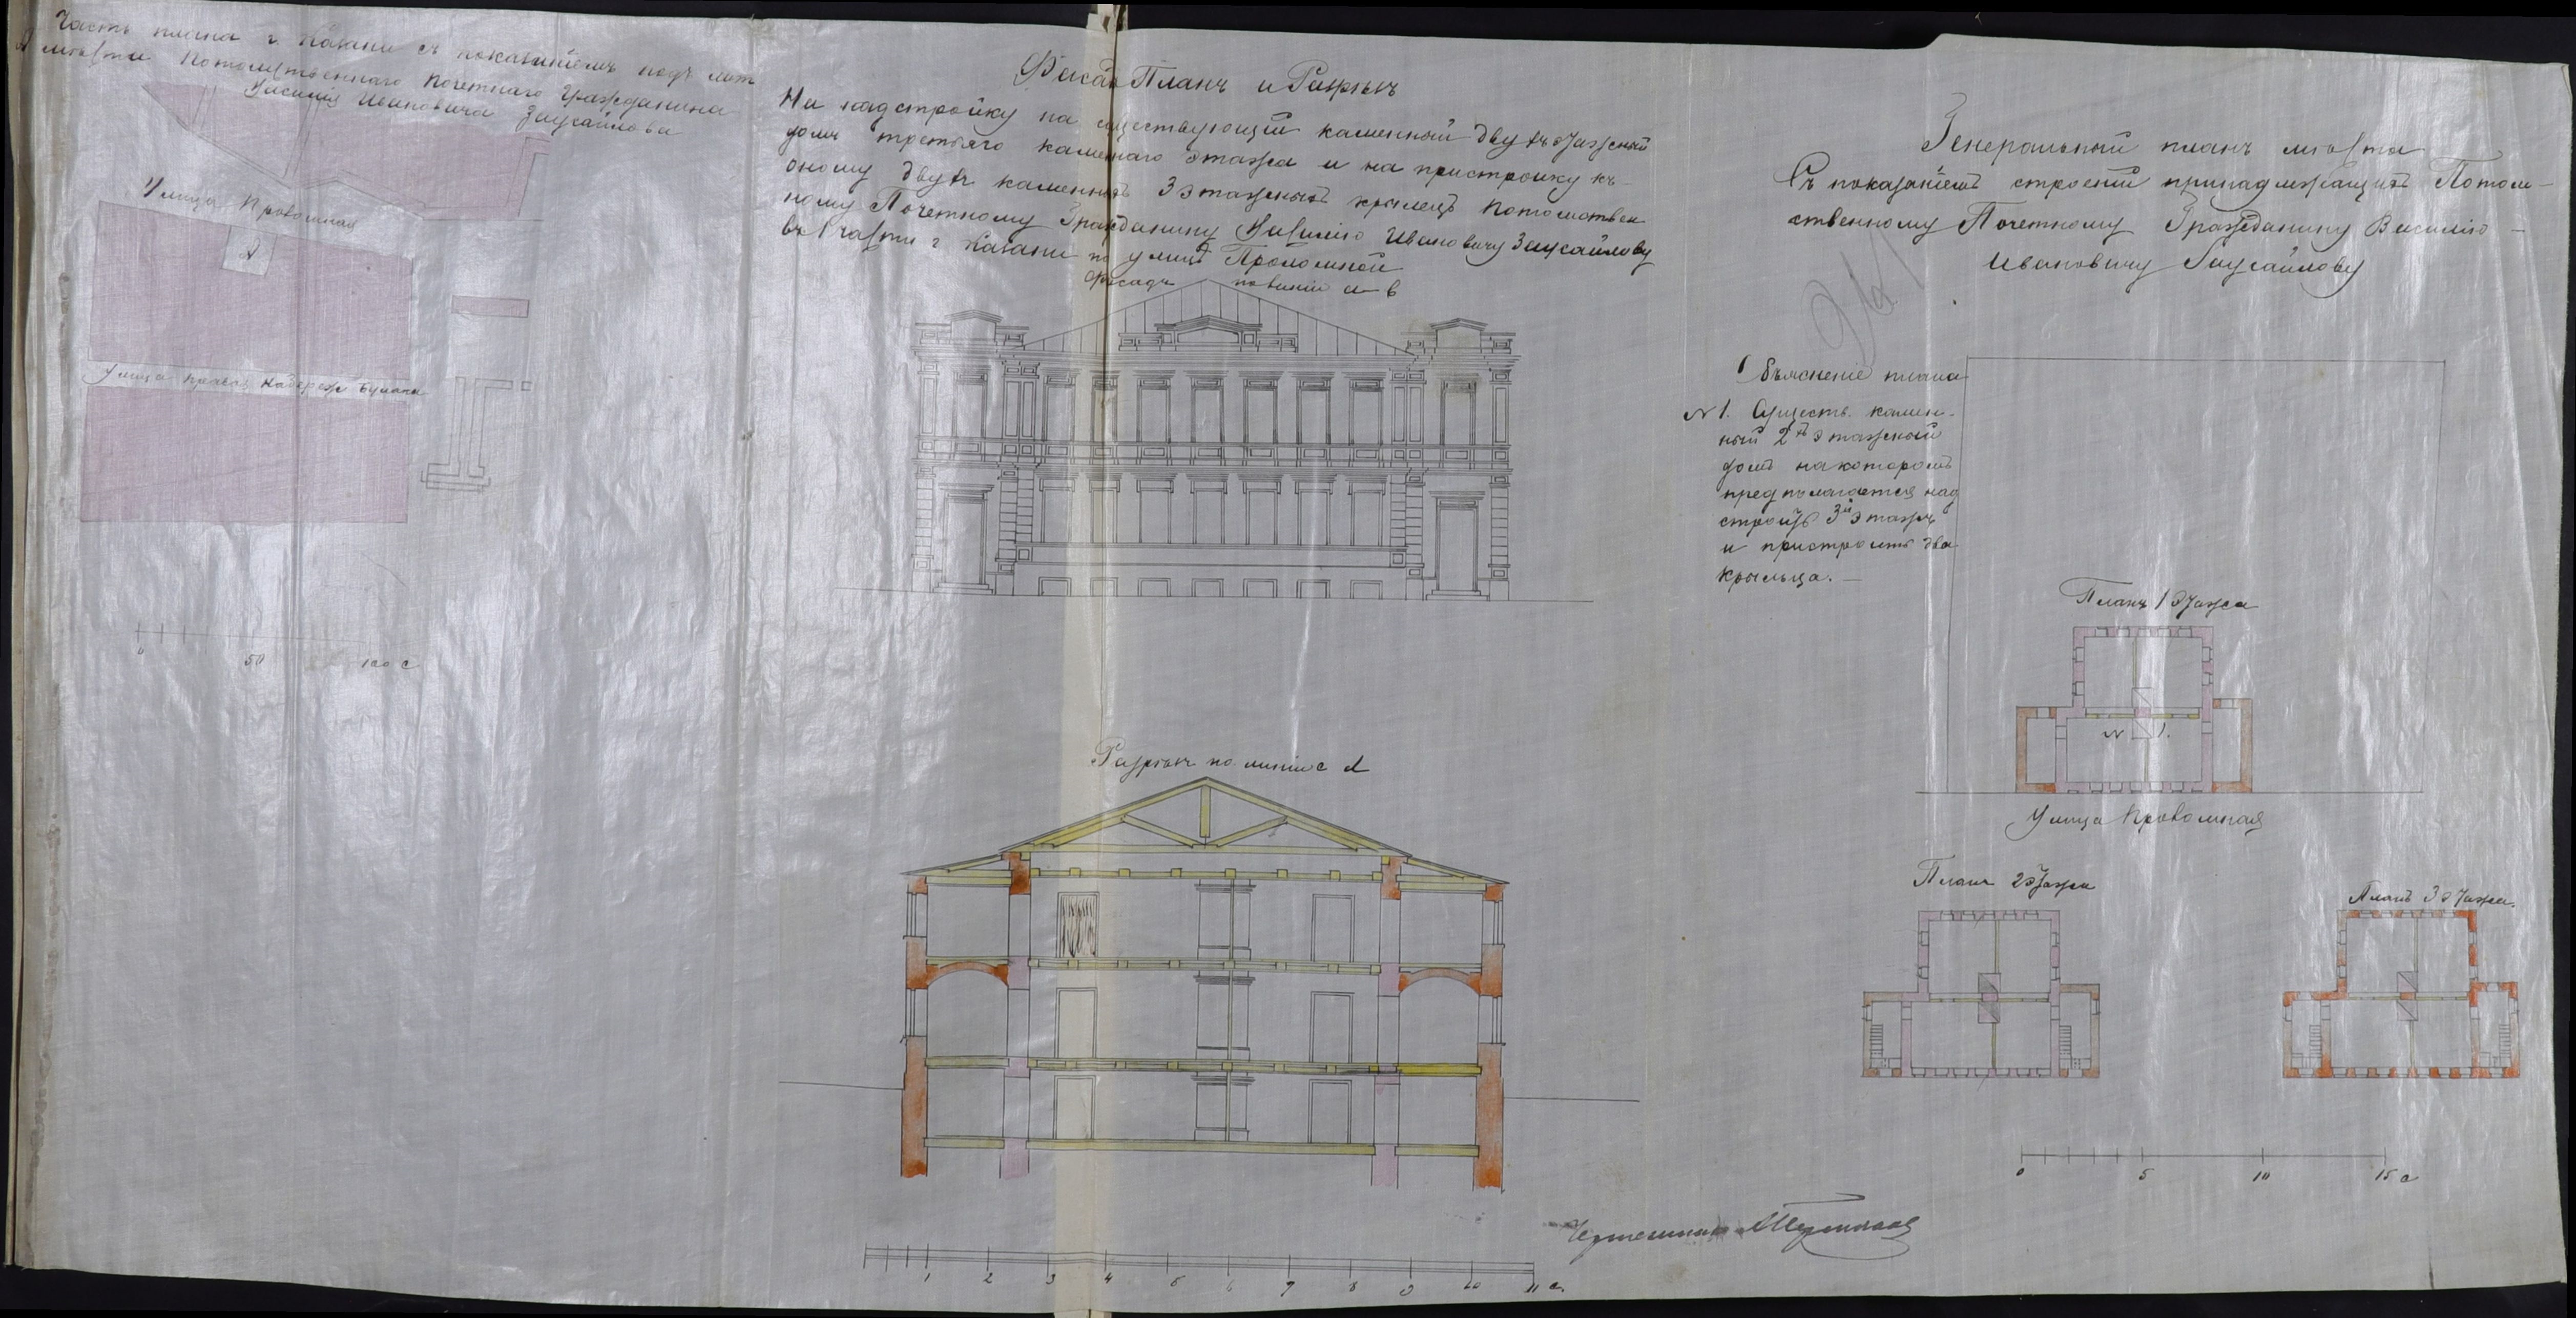 Часть плана г. Казани съ показаніемъ подъ лит
А мѣста Потомственнаго Почетнаго Гражданина
Василія Ивановича Заусайлова
Улица Проломная
А
Улица Правая Набереж Булака
0 50 100 с
Фасадъ Планъ и Разрѣзъ
На надстройку на существующій каменный двухъ этажный
домъ третьяго каменнаго этажа и на пристройку къ
оному двухъ каменныхъ 3 этажныхъ крылецъ Потомствен
ному Почетному Гражданину Василію Ивановичу Заусайлову
въ 1 части г Казани по улицѣ Проломной
Фасадъ по линіи а в
Разрѣзъ по линіи с d
1 2 3 4 5 6 7 8 9 10 11 с.
Генеральный планъ мѣста
Съ показаніемъ строеній принадлежащихъ Потом-
ственному Почетному Гражданину Василію
Ивановичу Заусайлову
Объясненіе плана
№ 1. Существ. камен-
ный 2хъ этажный
домъ на которомъ
предполагается над
строить 3й этажъ
и пристроить два
крыльца.
Планъ 1 этажа
№ 1.
Улица Проломная
Планъ 2 этажа
Планъ 3 этажа.
0 5 10 15 с